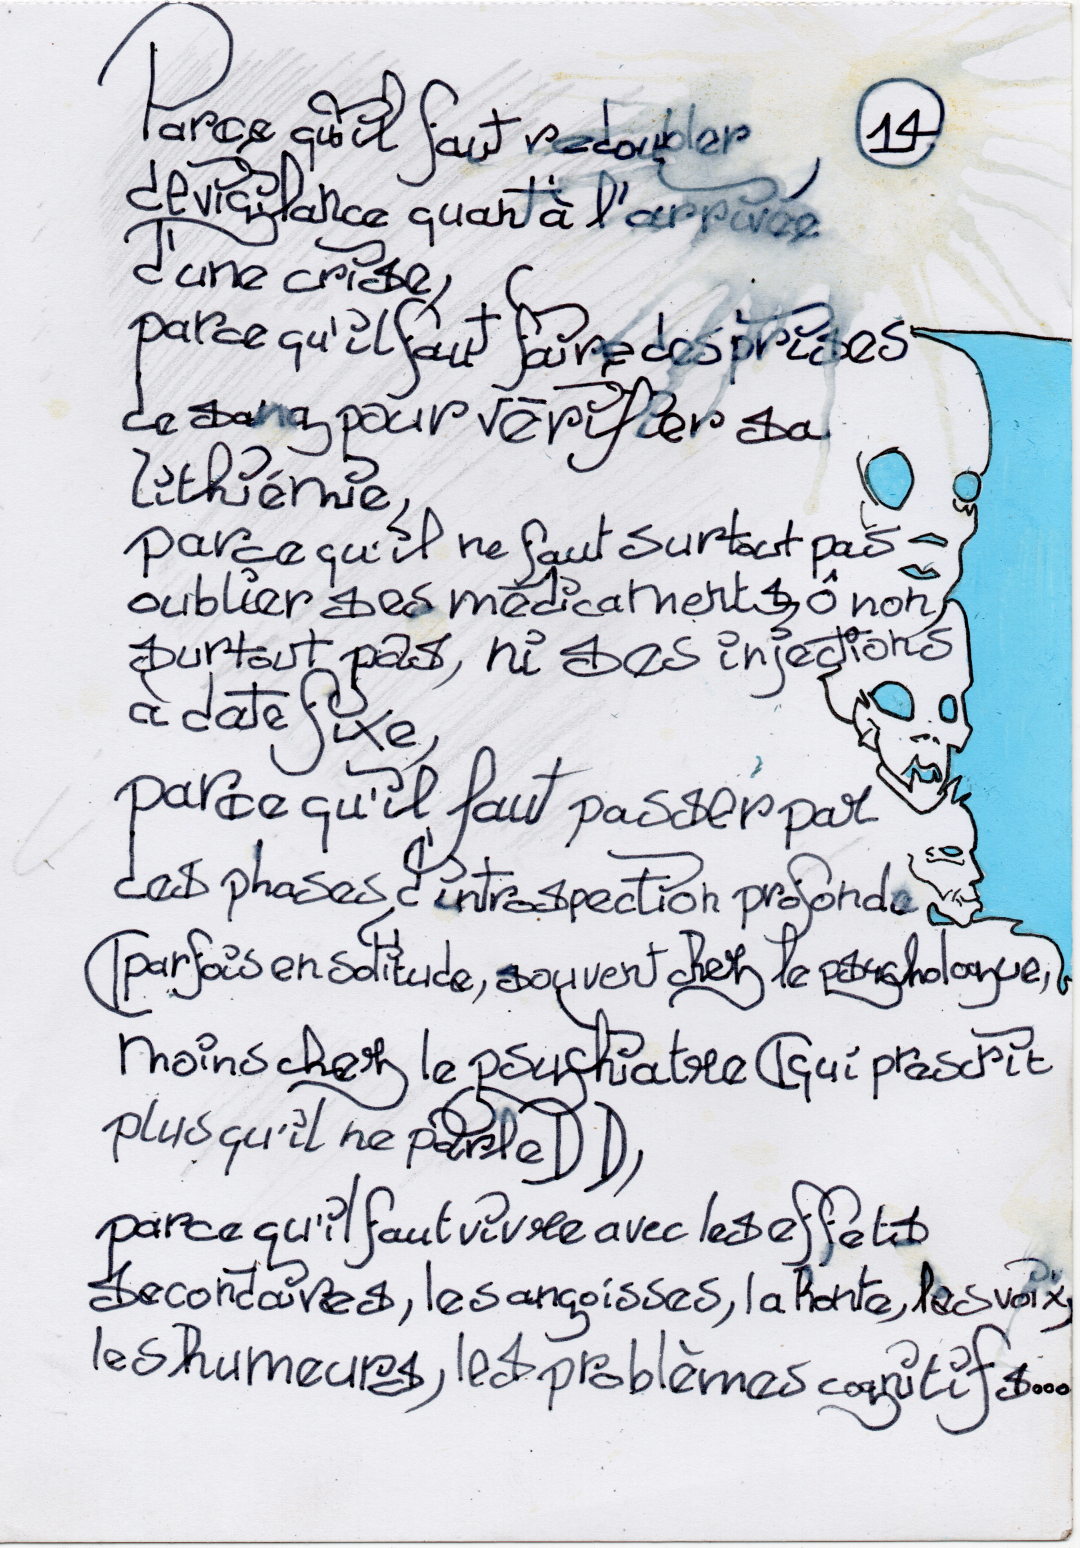 14
Parce qu'il faut redoubler
de vigilance quant à l'arrivée
d'une crise,
parce qu'il faut faire des prises
de sang pour vérifier sa
lithiémie,
parce qu'il ne faut surtout pas
oublier ses médicaments, ô non,
surtout pas, ni ses injections
à date fixe,
parce qu'il faut passer par
des phases d'introspection profonde
(parfois en solitude, souvent chez le psychologue,
moins chez le psychiatre (qui prescrit
plus qu'il ne parle)),
parce qu'il faut vivre avec les effets
secondaires, les angoisses, la honte, les voix,
les humeurs, les problèmes cognitifs...